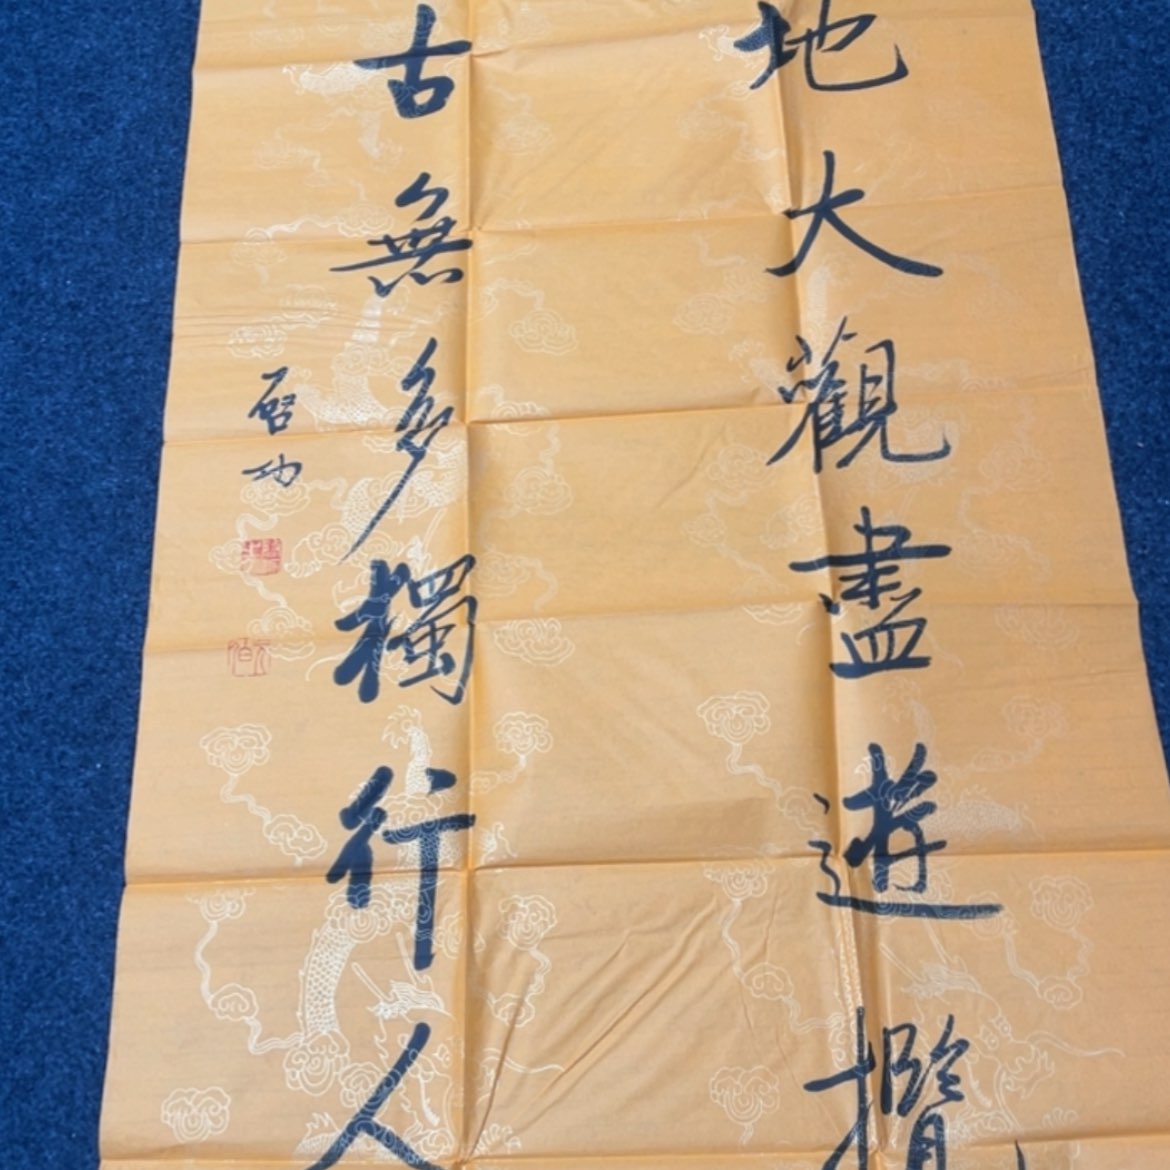 地大觀盡遊攬
古無多獨行人
启功